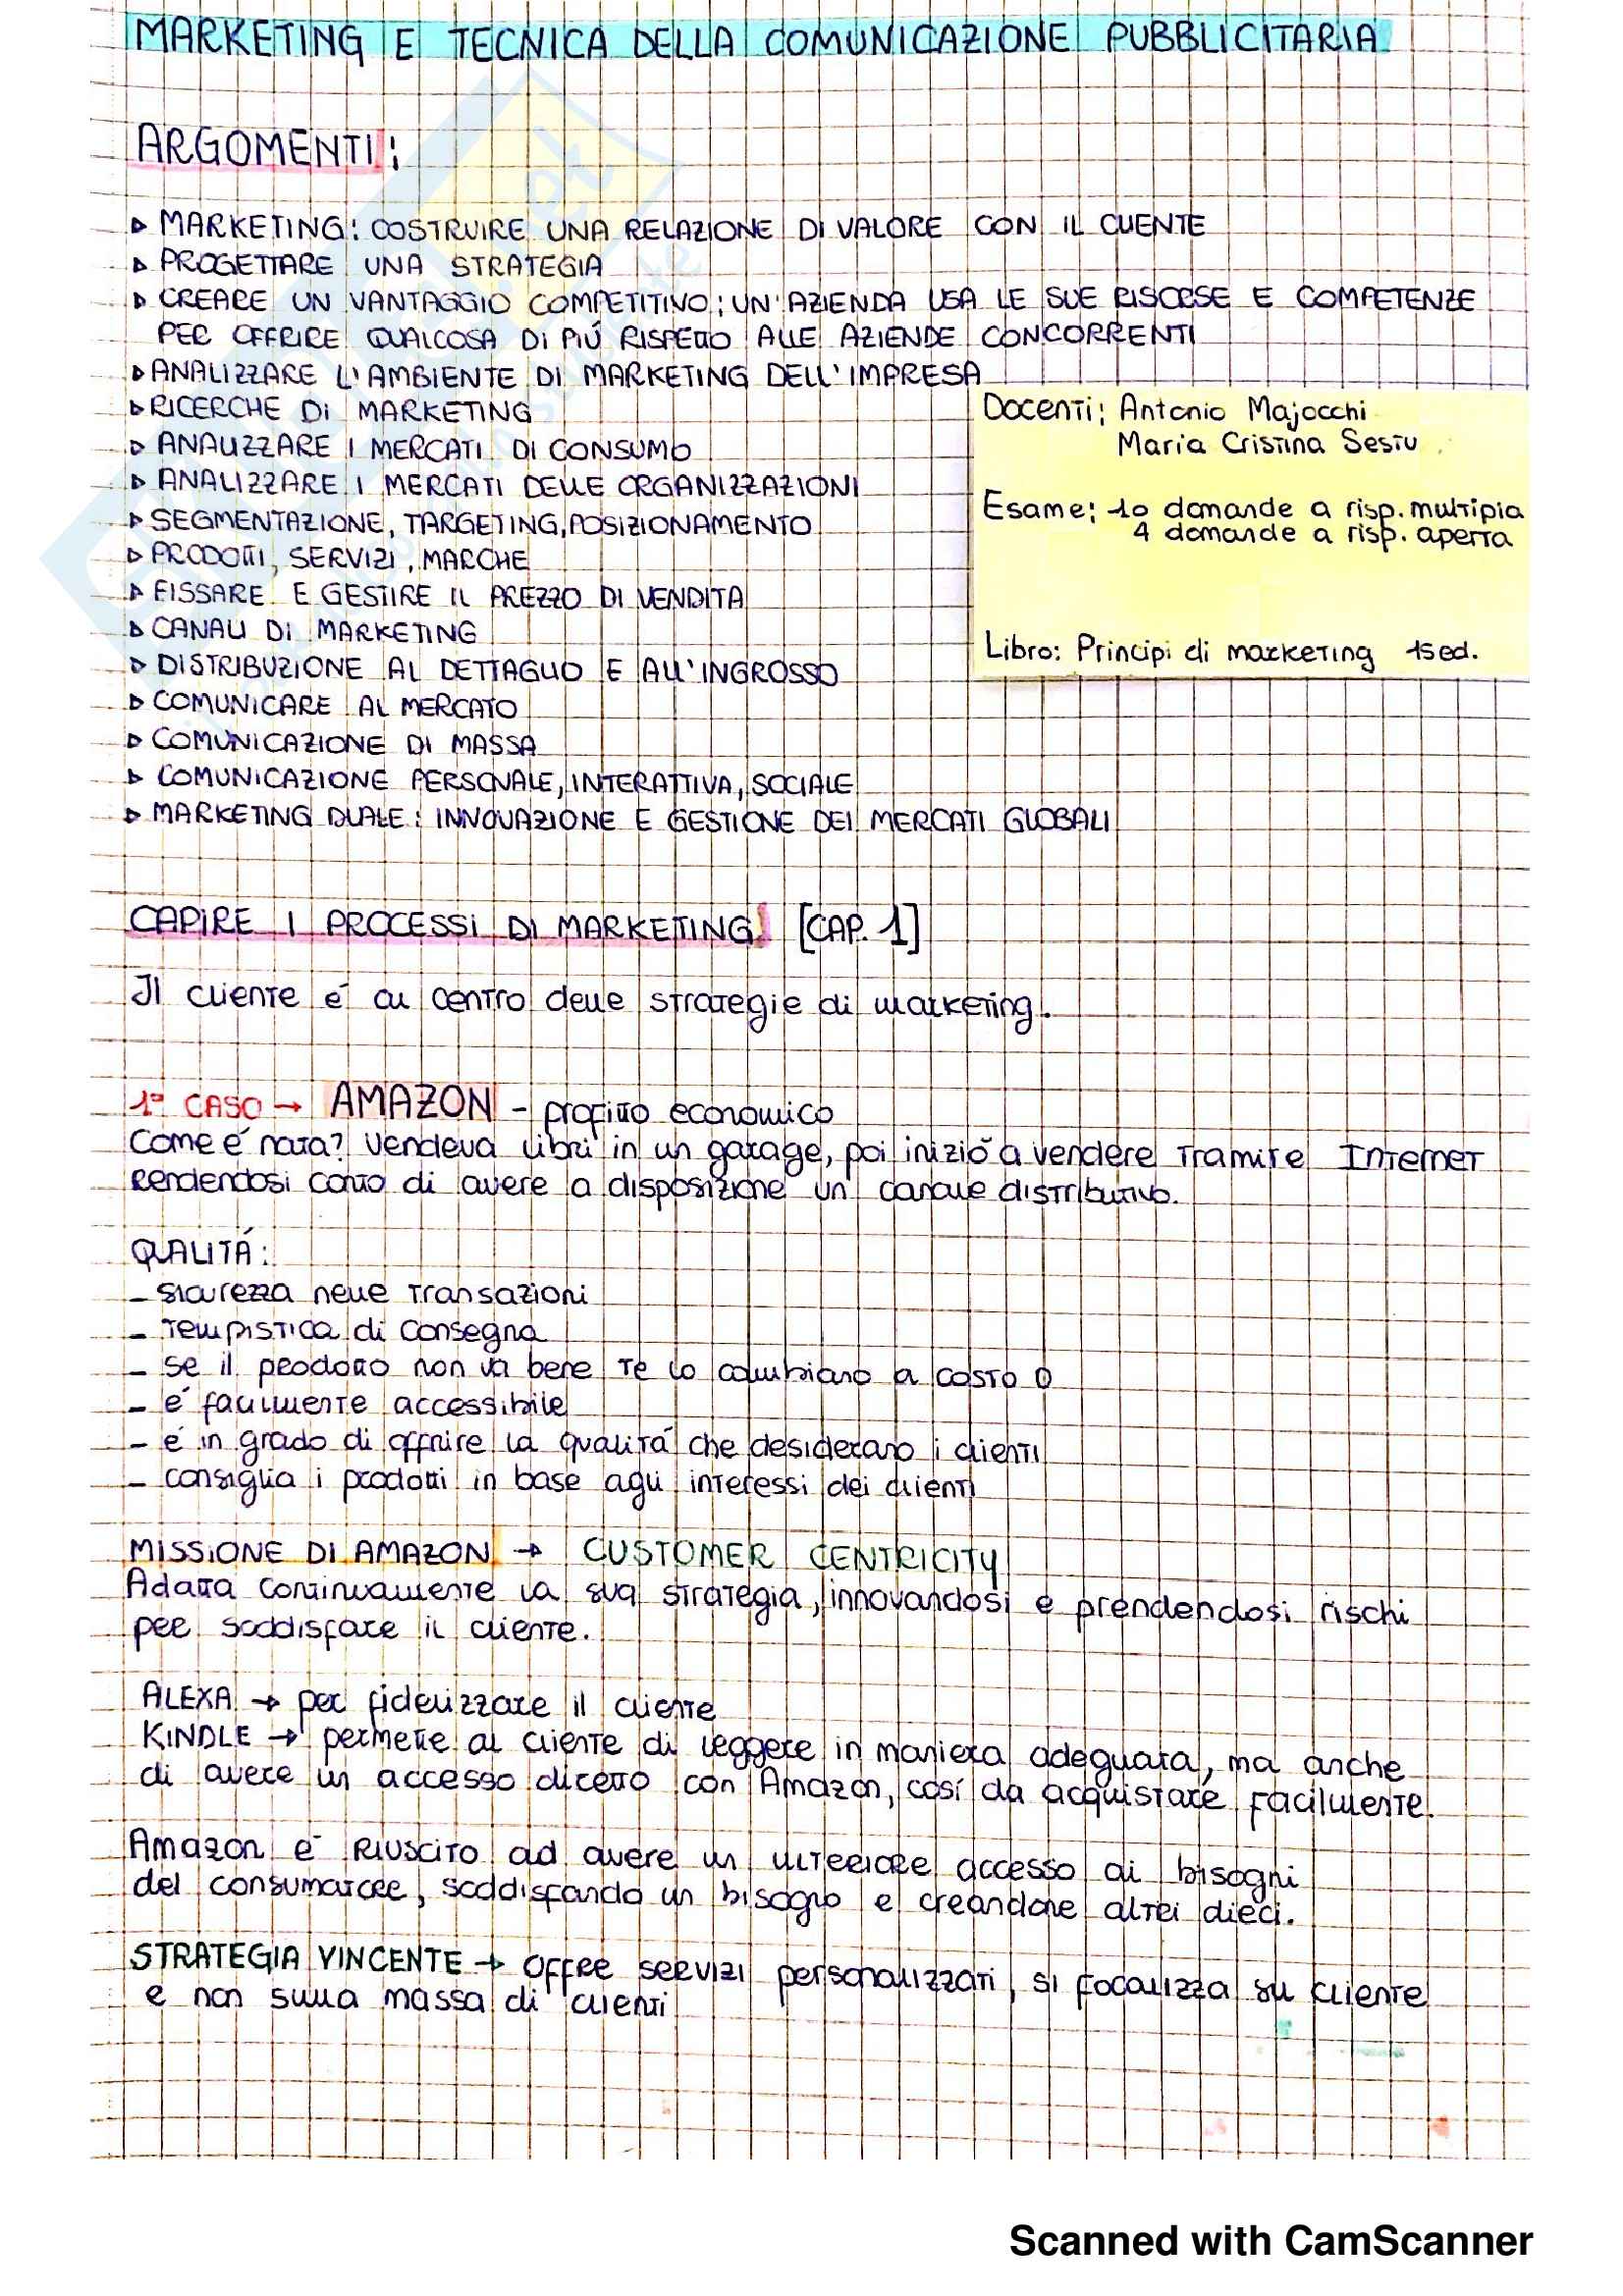 MARKETING E TECNICA DELLA COMUNICAZIONE PUBBLICITARIA
ARGOMENTI:
▷ MARKETING: COSTRUIRE UNA RELAZIONE DI VALORE CON IL CLIENTE
▷ PROGETTARE UNA STRATEGIA
▷ CREARE UN VANTAGGIO COMPETITIVO: UN'AZIENDA USA LE SUE RISORSE E COMPETENZE
PER OFFRIRE QUALCOSA DI PIÚ RISPETTO ALLE AZIENDE CONCORRENTI
▷ ANALIZZARE L'AMBIENTE DI MARKETING DELL'IMPRESA
▷ RICERCHE DI MARKETING
▷ ANALIZZARE I MERCATI DI CONSUMO
▷ ANALIZZARE I MERCATI DELLE ORGANIZZAZIONI
▷ SEGMENTAZIONE, TARGETING, POSIZIONAMENTO
▷ PRODOTTI, SERVIZI, MARCHE
▷ FISSARE E GESTIRE IL PREZZO DI VENDITA
▷ CANALI DI MARKETING
▷ DISTRIBUZIONE AL DETTAGLIO E ALL'INGROSSO
▷ COMUNICARE AL MERCATO
▷ COMUNICAZIONE DI MASSA
▷ COMUNICAZIONE PERSONALE, INTERATTIVA, SOCIALE
▷ MARKETING DUALE: INNOVAZIONE E GESTIONE DEI MERCATI GLOBALI
Docenti: Antonio Majocchi
Maria Cristina Sestu
Esame: 10 domande a risp. multipla
4 domande a risp. aperta
Libro: Principi di marketing 15ed.
CAPIRE I PROCESSI DI MARKETING [CAP. 1]
Il cliente é al centro delle strategie di marketing.
1° CASO → AMAZON - profitto economico
Come é nata? Vendeva libri in un garage, poi inizió a vendere tramite Internet
rendendosi conto di avere a disposizione un canale distributivo.
QUALITÁ:
- sicurezza nelle transazioni
- tempistica di consegna
- se il prodotto non va bene te lo cambiano a costo 0
- é facilmente accessibile
- é in grado di offrire la qualitá che desiderano i clienti
- consiglia i prodotti in base agli interessi dei clienti
MISSIONE DI AMAZON → CUSTOMER CENTRICITY
Adatta continuamente la sua strategia, innovandosi e prendendosi rischi
per soddisfare il cliente.
ALEXA → per fidelizzare il cliente
KINDLE → permette al cliente di leggere in maniera adeguata, ma anche
di avere un accesso diretto con Amazon, cosí da acquistare facilmente.
Amazon é riuscito ad avere un ulteriore accesso ai bisogni
del consumatore, soddisfando un bisogno e creandone altri dieci.
STRATEGIA VINCENTE → offre servizi personalizzati, si focalizza sul cliente
e non sulla massa di clienti
Scanned with CamScanner